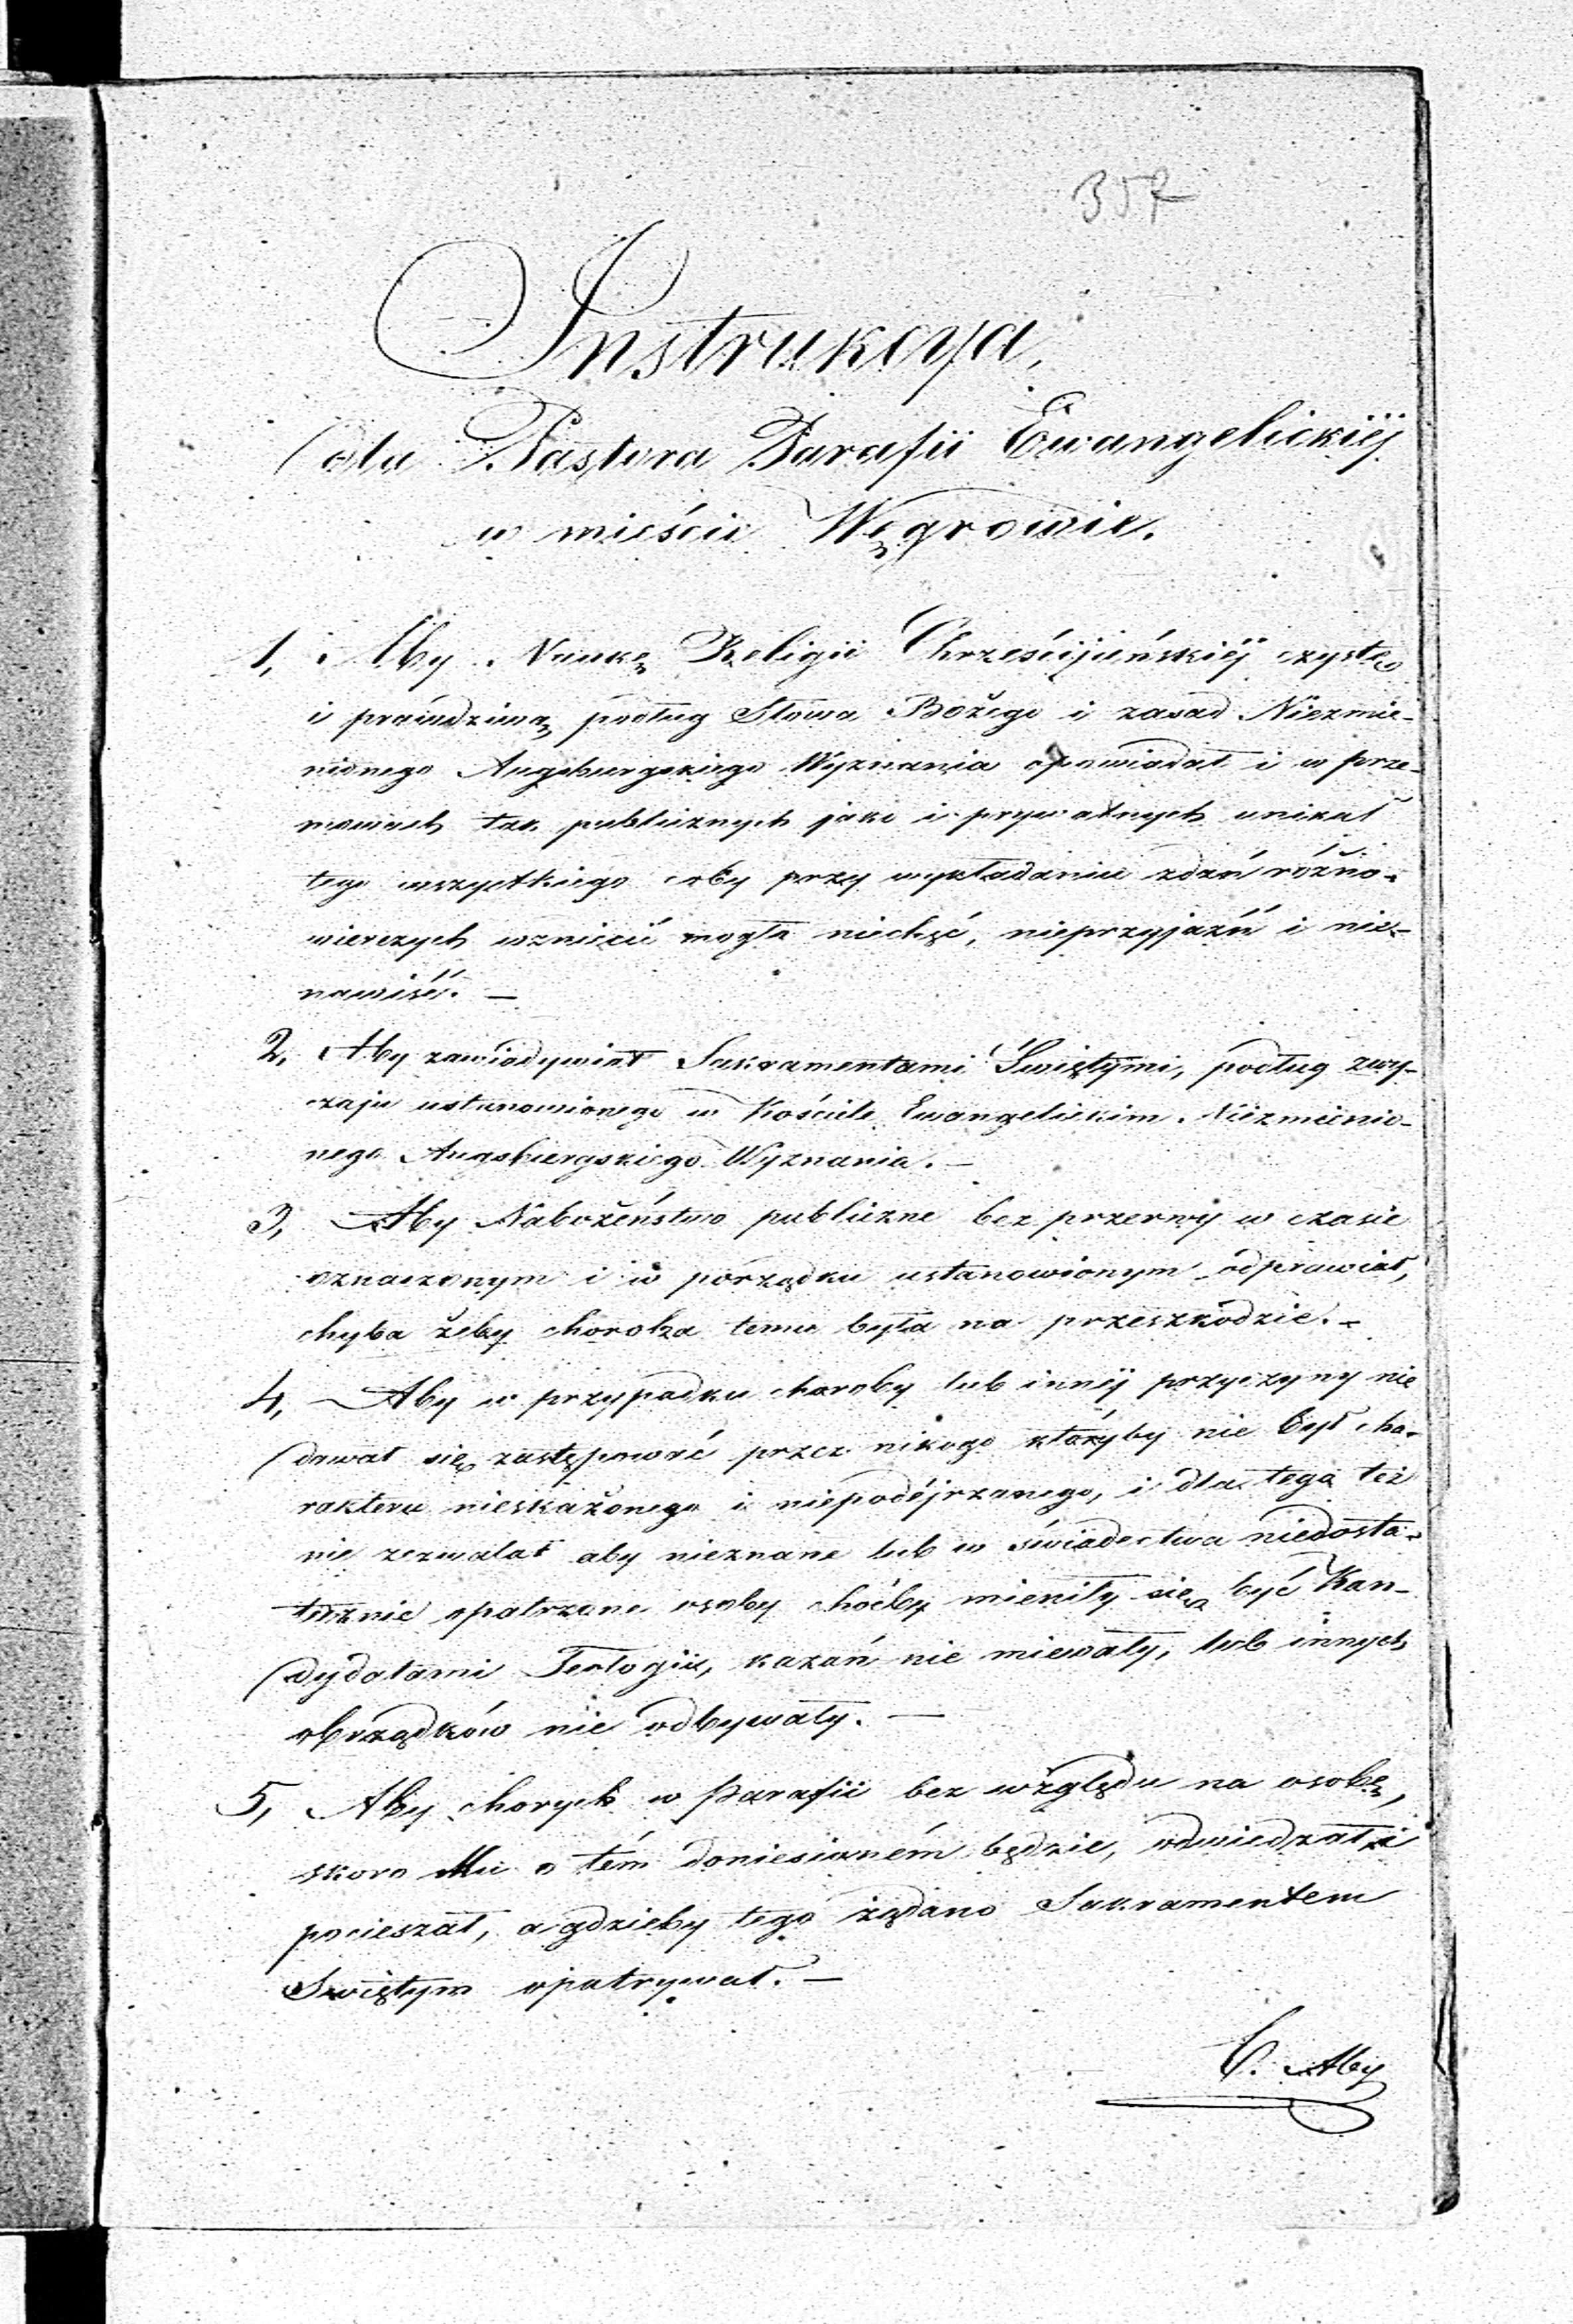 357
Instrukcya,
dla Pastora Parafii Ewangelickiéj
w mieście Węgrowie.
1, Aby Naukę Religii Chrześcijańskiéj czystą
i prawdziwą podług Słowa Bożego i zasad Niezmie-
nionego Augsburgskiego Wyznania opowiadał i w prze-
mowach tak publicznych jako i prywatnych unikał
tego wszystkiego coby przy wykładaniu zdań różno-
wierczych wzniecić mogło niechęć, nieprzyjaźń i nie-
nawiść. —
2, Aby zawiadywał Sakramentami Świętymi, podług zwy-
czaju ustanowionego w Kościele Ewangelickim Niezmienio-
nego Augsburgskiego Wyznania. —
3, Aby Nabożeństwo publiczne bez przerwy w czasie
oznaczonym i w porządku ustanowionym odprawiał,
chyba żeby choroba temu była na przeszkodzie. —
4, Aby w przypadku choroby lub innéj przyczyny nie
dawał się zastępować przez nikogo któryby nie był cha-
rakteru nieskażonego i niepodéjrzanego, i dla tego też
nie zezwalał aby nieznane lub w świadectwa niedosta-
tecznie opatrzone osoby choćby mieniły się być Kan-
dydatami Teologii, kazań nie miewały, lub innych
obrządków nie odbywały. —
5, Aby chorych w Parafii bez względu na osobę,
skoro Mu o tém doniesioném będzie, odwiedzał i
pocieszał, a gdzieby tego żądano Sakramentem
Świętym opatrywał. —
6. Aby